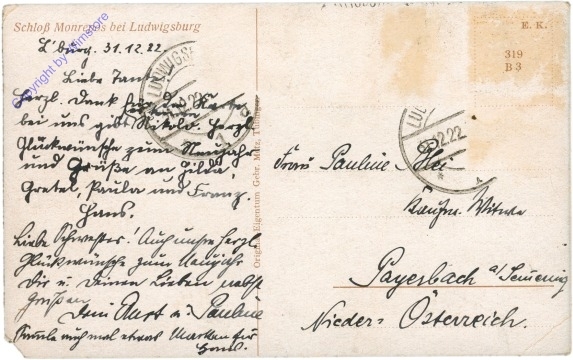 Schloß Monrepos bei Ludwigsburg
L'burg. 31.12.22.
Liebe Tante
Herzl. Dank für die Karte
bei uns gibt Nikold. Herzl.
Glückwünsche zum Neujahr
und Grüße an Hilda,
Gretel, Paula und Franz.
Hans.
Liebe Schwester! Auch unsre herzl
Glückwünsche zum Neujahr
Dir u. deinen Lieben nebst
Grüßen
Dein August u. Pauline
Samle auch mal etwas Marken für
Hans.
Original-Eigentum Gebr. Metz, Tübingen
E. K.
319
B 3
Frau Pauline
Kaufm. Witwe
Payerbach a/Semering
Nieder-Österreich.
Copyright by filmstore
12.22